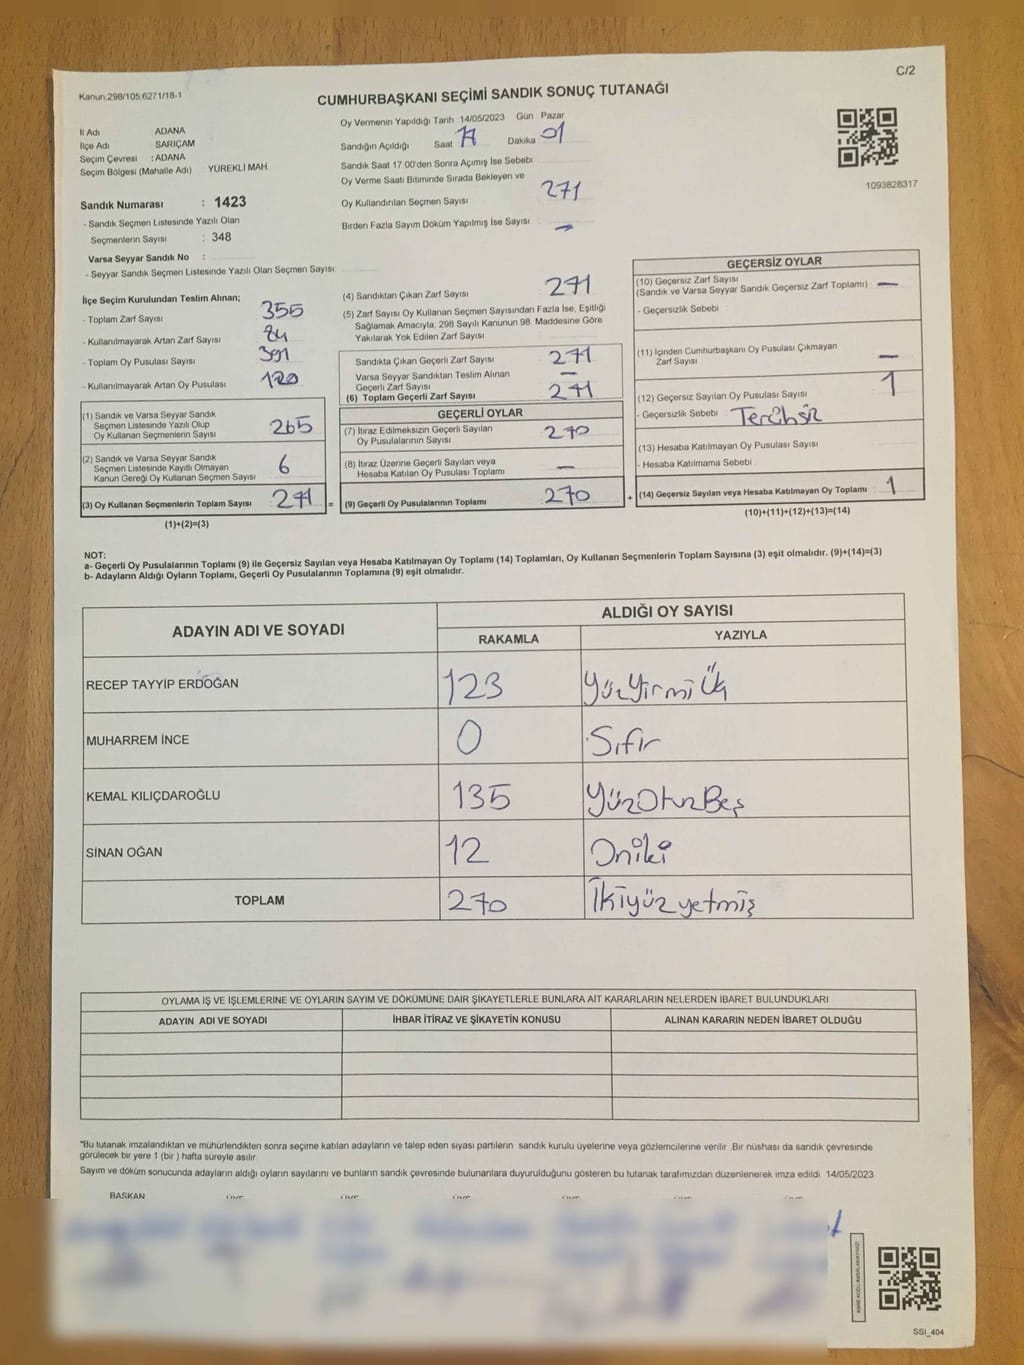 C/2
Kanun,298/105,6271/18-1
CUMHURBAŞKANI SEÇİMİ SANDIK SONUÇ TUTANAĞI
İl Adı ADANA
İlçe Adı SARIÇAM
Seçim Çevresi : ADANA
Seçim Bölgesi (Mahalle Adı) YÜREKLİ MAH.
Oy Vermenin Yapıldığı Tarih 14/05/2023 Gün Pazar
Sandığın Açıldığı Saat 17 Dakika 01
Sandık Saat 17:00'den Sonra Açımış İse Sebebi
Oy Verme Saati Bitiminde Sırada Bekleyen ve
Oy Kullandırılan Seçmen Sayısı 271
Birden Fazla Sayım Döküm Yapılmış İse Sayısı —
1093828317
Sandık Numarası : 1423
- Sandık Seçmen Listesinde Yazılı Olan
Seçmenlerin Sayısı : 348
Varsa Seyyar Sandık No :
- Seyyar Sandık Seçmen Listesinde Yazılı Olan Seçmen Sayısı:
İlçe Seçim Kurulundan Teslim Alınan;
- Toplam Zarf Sayısı 355
- Kullanılmayarak Artan Zarf Sayısı 84
- Toplam Oy Pusulası Sayısı 391
- Kullanılmayarak Artan Oy Pusulası 120
(1) Sandık ve Varsa Seyyar Sandık
Seçmen Listesinde Yazılı Olup
Oy Kullanan Seçmenlerin Sayısı 265
(2) Sandık ve Varsa Seyyar Sandık
Seçmen Listesinde Kayıtlı Olmayan
Kanun Gereği Oy Kullanan Seçmen Sayısı 6
(3) Oy Kullanan Seçmenlerin Toplam Sayısı 271 =
(1)+(2)=(3)
(4) Sandıktan Çıkan Zarf Sayısı 271
(5) Zarf Sayısı Oy Kullanan Seçmen Sayısından Fazla İse, Eşitliği
Sağlamak Amacıyla, 298 Sayılı Kanunun 98. Maddesine Göre
Yakılarak Yok Edilen Zarf Sayısı
Sandıkta Çıkan Geçerli Zarf Sayısı 271
Varsa Seyyar Sandıktan Teslim Alınan
Geçerli Zarf Sayısı —
(6) Toplam Geçerli Zarf Sayısı 271
GEÇERLİ OYLAR
(7) İtiraz Edilmeksizin Geçerli Sayılan
Oy Pusulalarının Sayısı 270
(8) İtiraz Üzerine Geçerli Sayılan veya
Hesaba Katılan Oy Pusulası Toplamı —
(9) Geçerli Oy Pusulalarının Toplamı 270 +
GEÇERSİZ OYLAR
(10) Geçersiz Zarf Sayısı
(Sandık ve Varsa Seyyar Sandık Geçersiz Zarf Toplamı) —
- Geçersizlik Sebebi
(11) İçinden Cumhurbaşkanı Oy Pusulası Çıkmayan
Zarf Sayısı —
(12) Geçersiz Sayılan Oy Pusulası Sayısı 1
- Geçersizlik Sebebi Tercihsiz
(13) Hesaba Katılmayan Oy Pusulası Sayısı
- Hesaba Katılmama Sebebi
(14) Geçersiz Sayılan veya Hesaba Katılmayan Oy Toplamı : 1
(10)+(11)+(12)+(13)=(14)
NOT:
a- Geçerli Oy Pusulalarının Toplamı (9) ile Geçersiz Sayılan veya Hesaba Katılmayan Oy Toplamı (14) Toplamları, Oy Kullanan Seçmenlerin Toplam Sayısına (3) eşit olmalıdır. (9)+(14)=(3)
b- Adayların Aldığı Oyların Toplamı, Geçerli Oy Pusulalarının Toplamına (9) eşit olmalıdır.
ADAYIN ADI VE SOYADI ALDIĞI OY SAYISI
RAKAMLA YAZIYLA
RECEP TAYYİP ERDOĞAN 123 YüzYirmi Üç
MUHARREM İNCE 0 Sıfır
KEMAL KILIÇDAROĞLU 135 YüzOtuzBeş
SİNAN OĞAN 12 Oniki
TOPLAM 270 İkiyüz yetmiş
OYLAMA İŞ VE İŞLEMLERİNE VE OYLARIN SAYIM VE DÖKÜMÜNE DAİR ŞİKAYETLERLE BUNLARA AİT KARARLARIN NELERDEN İBARET BULUNDUKLARI
ADAYIN ADI VE SOYADI İHBAR İTİRAZ VE ŞİKAYETİN KONUSU ALINAN KARARIN NEDEN İBARET OLDUĞU
*Bu tutanak imzalandıktan ve mühürlendikten sonra seçime katılan adayların ve talep eden siyasi partilerin sandık kurulu üyelerine veya gözlemcilerine verilir. Bir nüshası da sandık çevresinde
görülecek bir yere 1 (bir) hafta süreyle asılır.
Sayım ve döküm sonucunda adayların aldığı oyların sayılarını ve bunların sandık çevresinde bulunanlara duyurulduğunu gösteren bu tutanak tarafımızdan düzenlenerek imza edildi. 14/05/2023
BAŞKAN
SSI_404